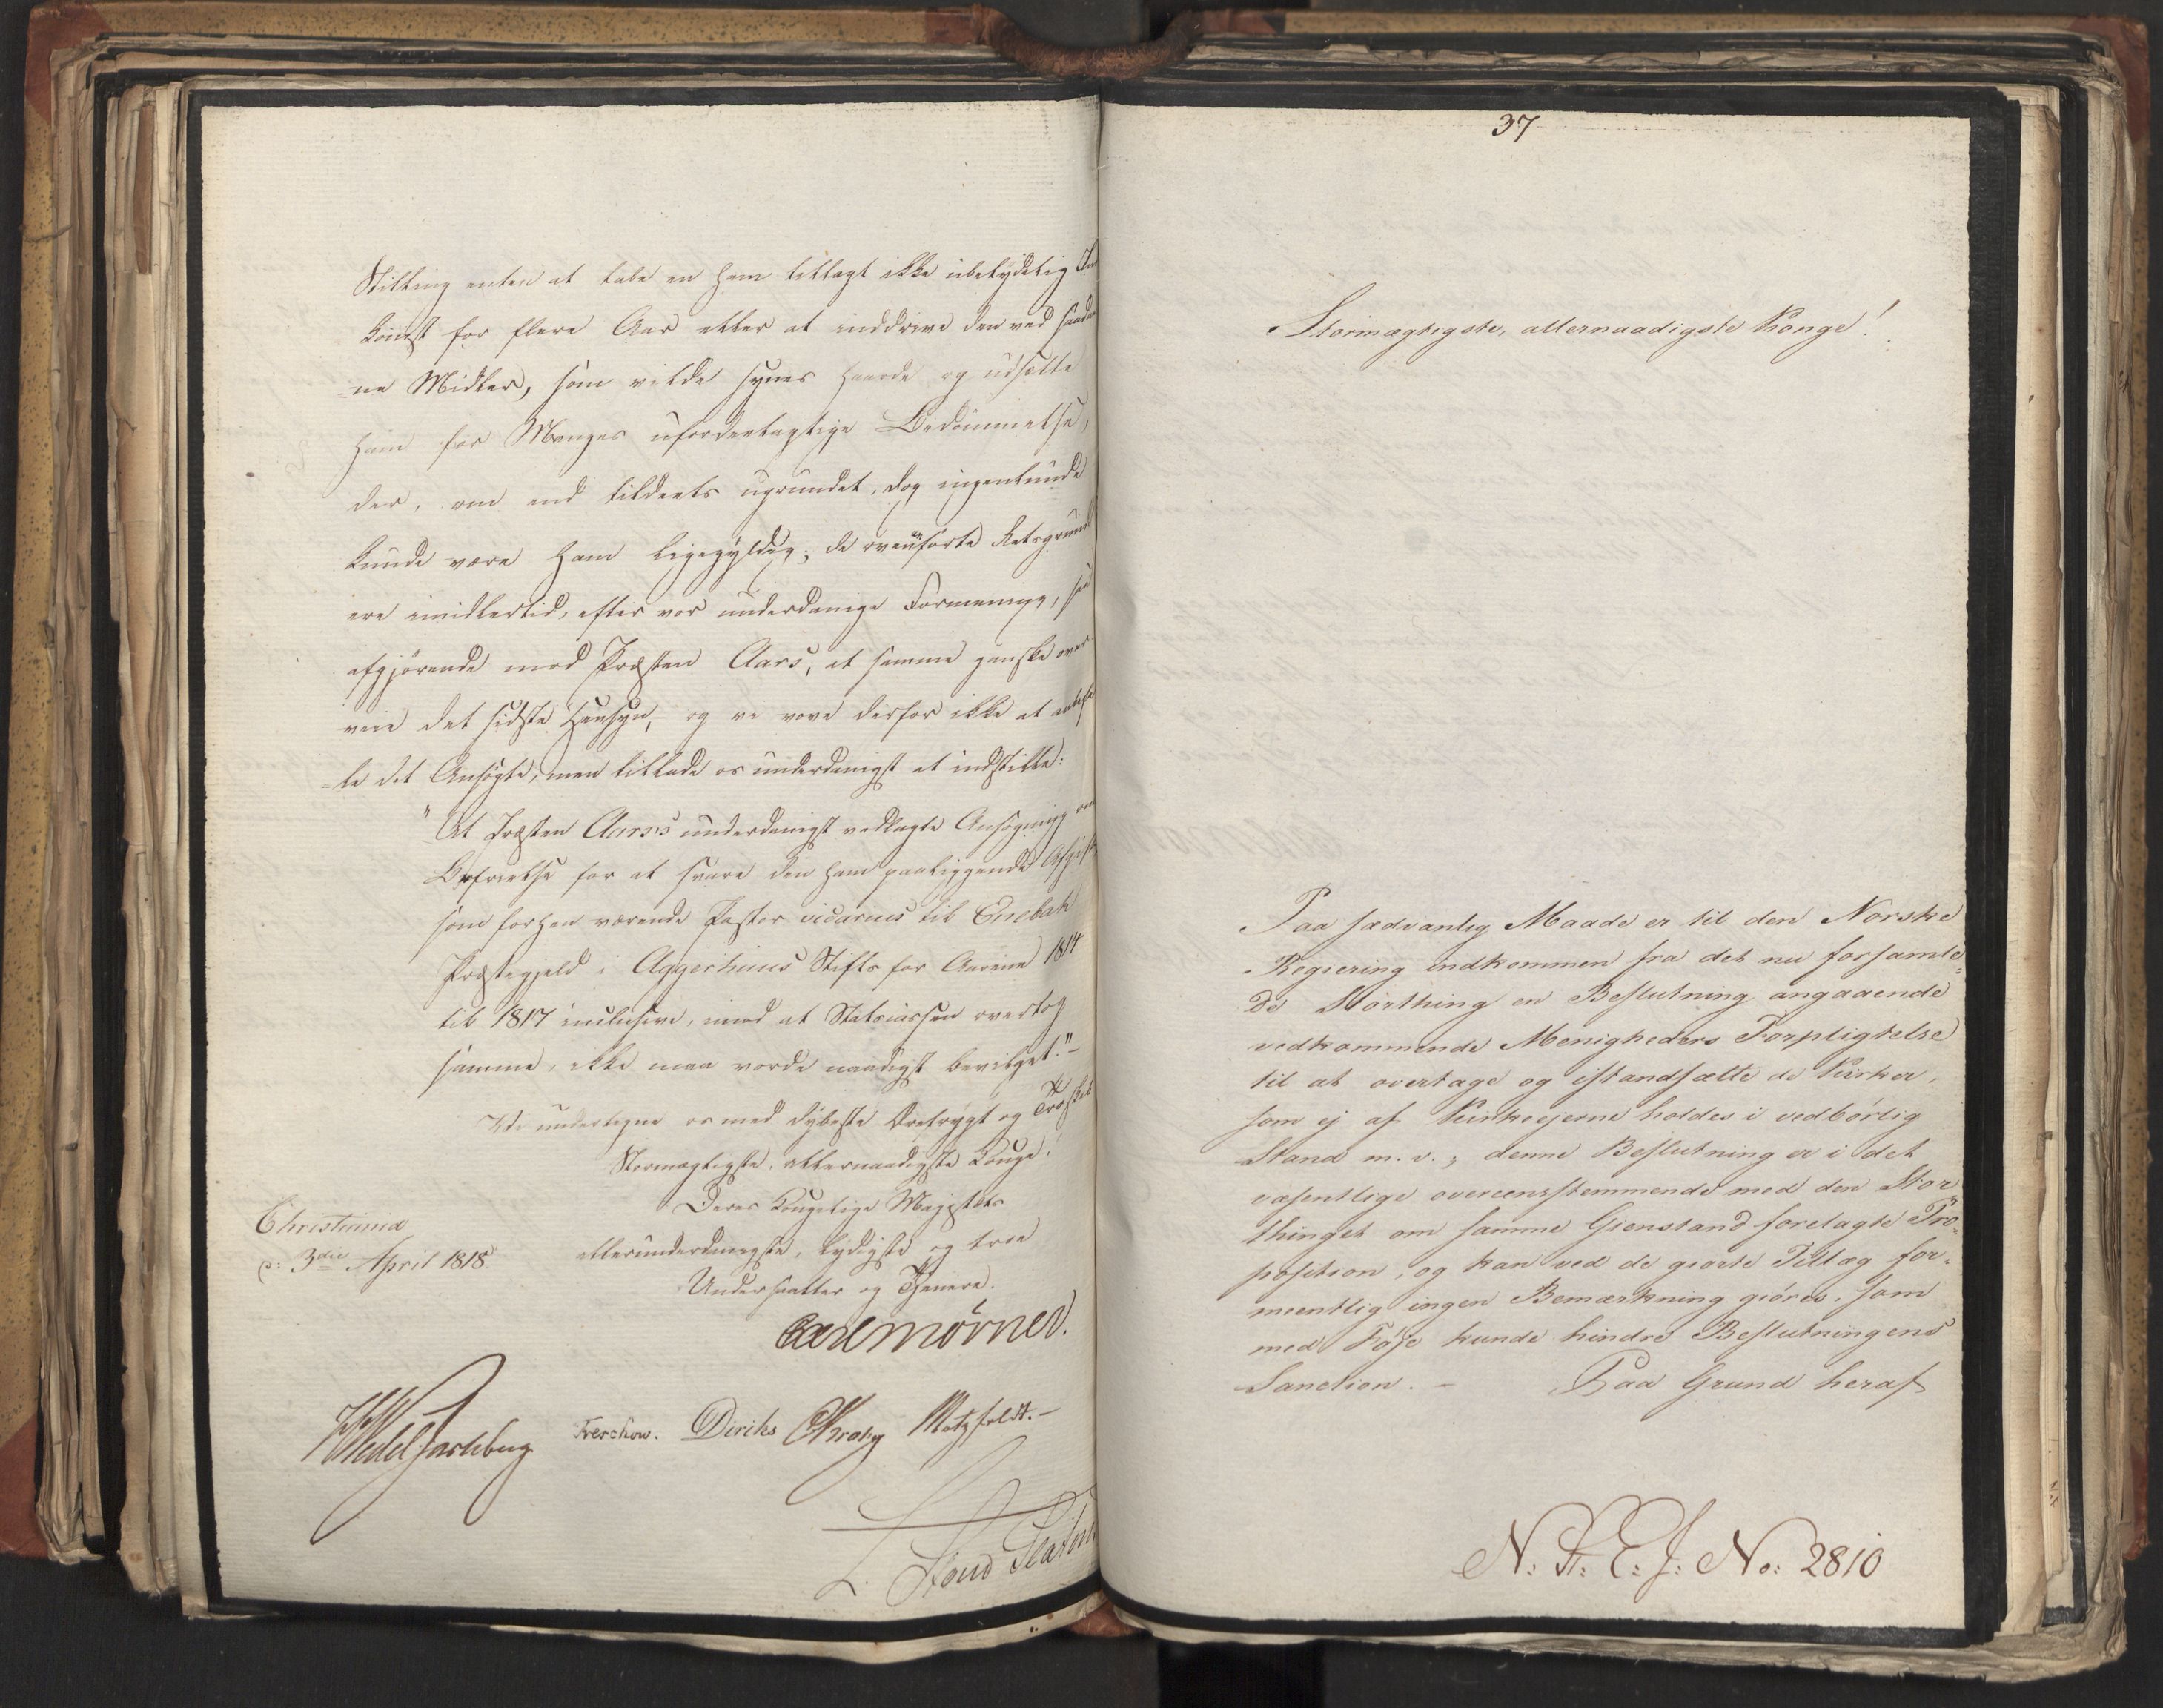 Stilling enten at tabe en ham tillagt ikke ubetydelig Ind
komst for flere Aar eller at inddrive den ved saada
ne Midler, som vilde synes haarde og udsætte
ham for Manges ufordeelagtige Bedømmelse,
der, om end tildeels ugrundet, dog ingenlunde
kunde være ham ligegyldig; de ovenanførte Retsgrunde
ere imidlertid, efter vor underdanige Formening, saa
afgjørende mod Præsten Aars, at samme ganske over
veie det sidste Hensyn, og vi vove derfor ikke at anbefa
-le det Ansøgte, men tillade os underdanigst at indstille:
"At Præsten Aars's underdanigst vedlagte Ansøgning om
Befrielse for at svare den ham paaliggende Afgift
som forhen værende Pastor vicarius til Enebak
Præstegjeld i Aggerhuus Stift for Aarene 1814
til 1817 inclusive, imod at Statscassen overtog
samme, ikke maa vorde naadigst bevilget."-
Vi undertegne os med dybeste Ærefrygt og Troskab
Stormægtigste, allernaadigste Konge!
Deres Kongelige Majestæts
allerunderdanigste, lydigste og troe
Undersaatter og Tjenere.
Christiania
d: 3die April 1818.
Carl Mörner.
HWedel Jarlsberg Treschow. Diriks CKrohg Motzfeldt.-
L. Stoud Platou
37
Stormægtigste, allernaadigste Konge!
Paa sædvanlig Maade er til den Norske
Regiering indkommen fra det nu forsamle-
de Storthing en Beslutning angaaende
vedkommende Menigheders Forpligtelse
til at overtage og istandsætte de Kirker,
som ej af Kirkeejerne holdes i vedbörlig
Stand m. v.; denne Beslutning er i det
væsentlige overeensstemmende med den Stor
thinget om samme Gienstand forelagte Pro-
position, og kan ved de giorte Tillæg for-
meentlig ingen Bemærkning giöres, som
med Föje kunde hindre Beslutningens
Sanction. - Paa Grund heraf
N: K: E: J: No: 2810